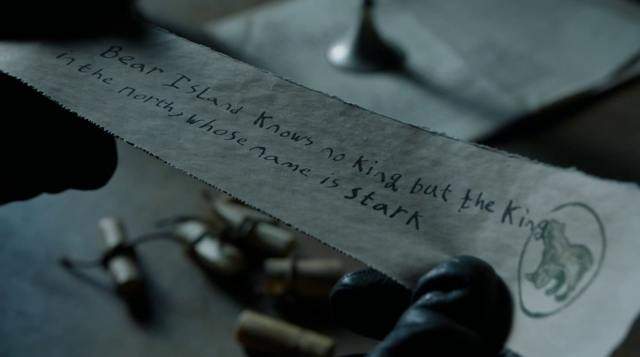 Bear Island Knows no King but the King
in the north, whose name is Stark